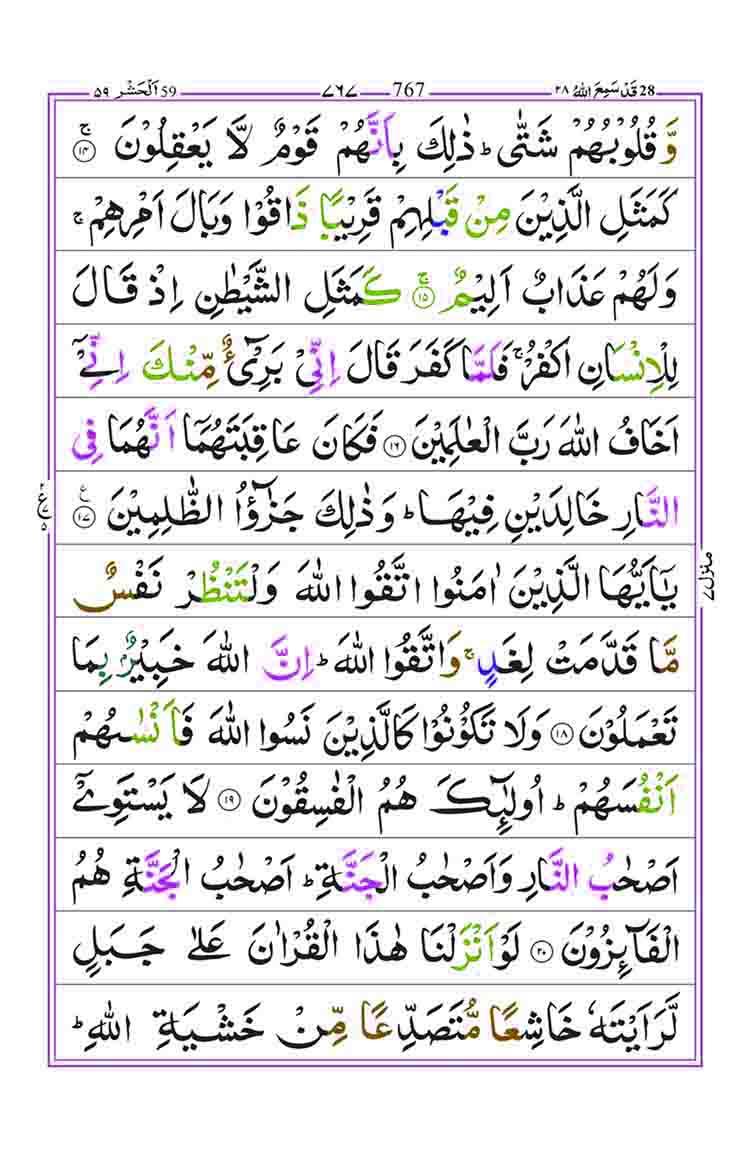 28 قَدْ سَمِعَ اللّٰهُ ٢٨ 767 ٧٦٧ 59 اَلْحَشْر ٥٩
وَّ قُلُوْبُهُمْ شَتّٰىؕ ذٰلِكَ بِاَنَّهُمْ قَوْمٌ لَّا يَعْقِلُوْنَۚ ۝١٤
كَمَثَلِ الَّذِيْنَ مِنْ قَبْلِهِمْ قَرِيْبًا ذَاقُوْا وَبَالَ اَمْرِهِمْۚ
وَلَهُمْ عَذَابٌ اَلِيْمٌۚ ۝١٥ كَمَثَلِ الشَّيْطٰنِ اِذْ قَالَ
لِلْاِنْسَانِ اكْفُرْۚ فَلَمَّا كَفَرَ قَالَ اِنِّيْ بَرِيْٓءٌ مِّنْكَ اِنِّيْٓ
اَخَافُ اللّٰهَ رَبَّ الْعٰلَمِيْنَ ۝١٦ فَكَانَ عَاقِبَتَهُمَاۤ اَنَّهُمَا فِي
النَّارِ خَالِدَيْنِ فِيْهَاؕ وَذٰلِكَ جَزٰٓؤُا الظّٰلِمِيْنَ ۝١٧ ع
يٰۤاَيُّهَا الَّذِيْنَ اٰمَنُوا اتَّقُوا اللّٰهَ وَلْتَنْظُرْ نَفْسٌ
مَّا قَدَّمَتْ لِغَدٍۚ وَاتَّقُوا اللّٰهَؕ اِنَّ اللّٰهَ خَبِيْرٌۢ بِمَا
تَعْمَلُوْنَ ۝١٨ وَلَا تَكُوْنُوْا كَالَّذِيْنَ نَسُوا اللّٰهَ فَاَنْسٰىهُمْ
اَنْفُسَهُمْؕ اُولٰٓئِكَ هُمُ الْفٰسِقُوْنَ ۝١٩ لَا يَسْتَوِيْٓ
اَصْحٰبُ النَّارِ وَاَصْحٰبُ الْجَنَّةِؕ اَصْحٰبُ الْجَنَّةِ هُمُ
الْفَآئِزُوْنَ ۝٢٠ لَوْ اَنْزَلْنَا هٰذَا الْقُرْاٰنَ عَلٰى جَبَلٍ
لَّرَاَيْتَهٗ خَاشِعًا مُّتَصَدِّعًا مِّنْ خَشْيَةِ اللّٰهِؕ
منزل ٧